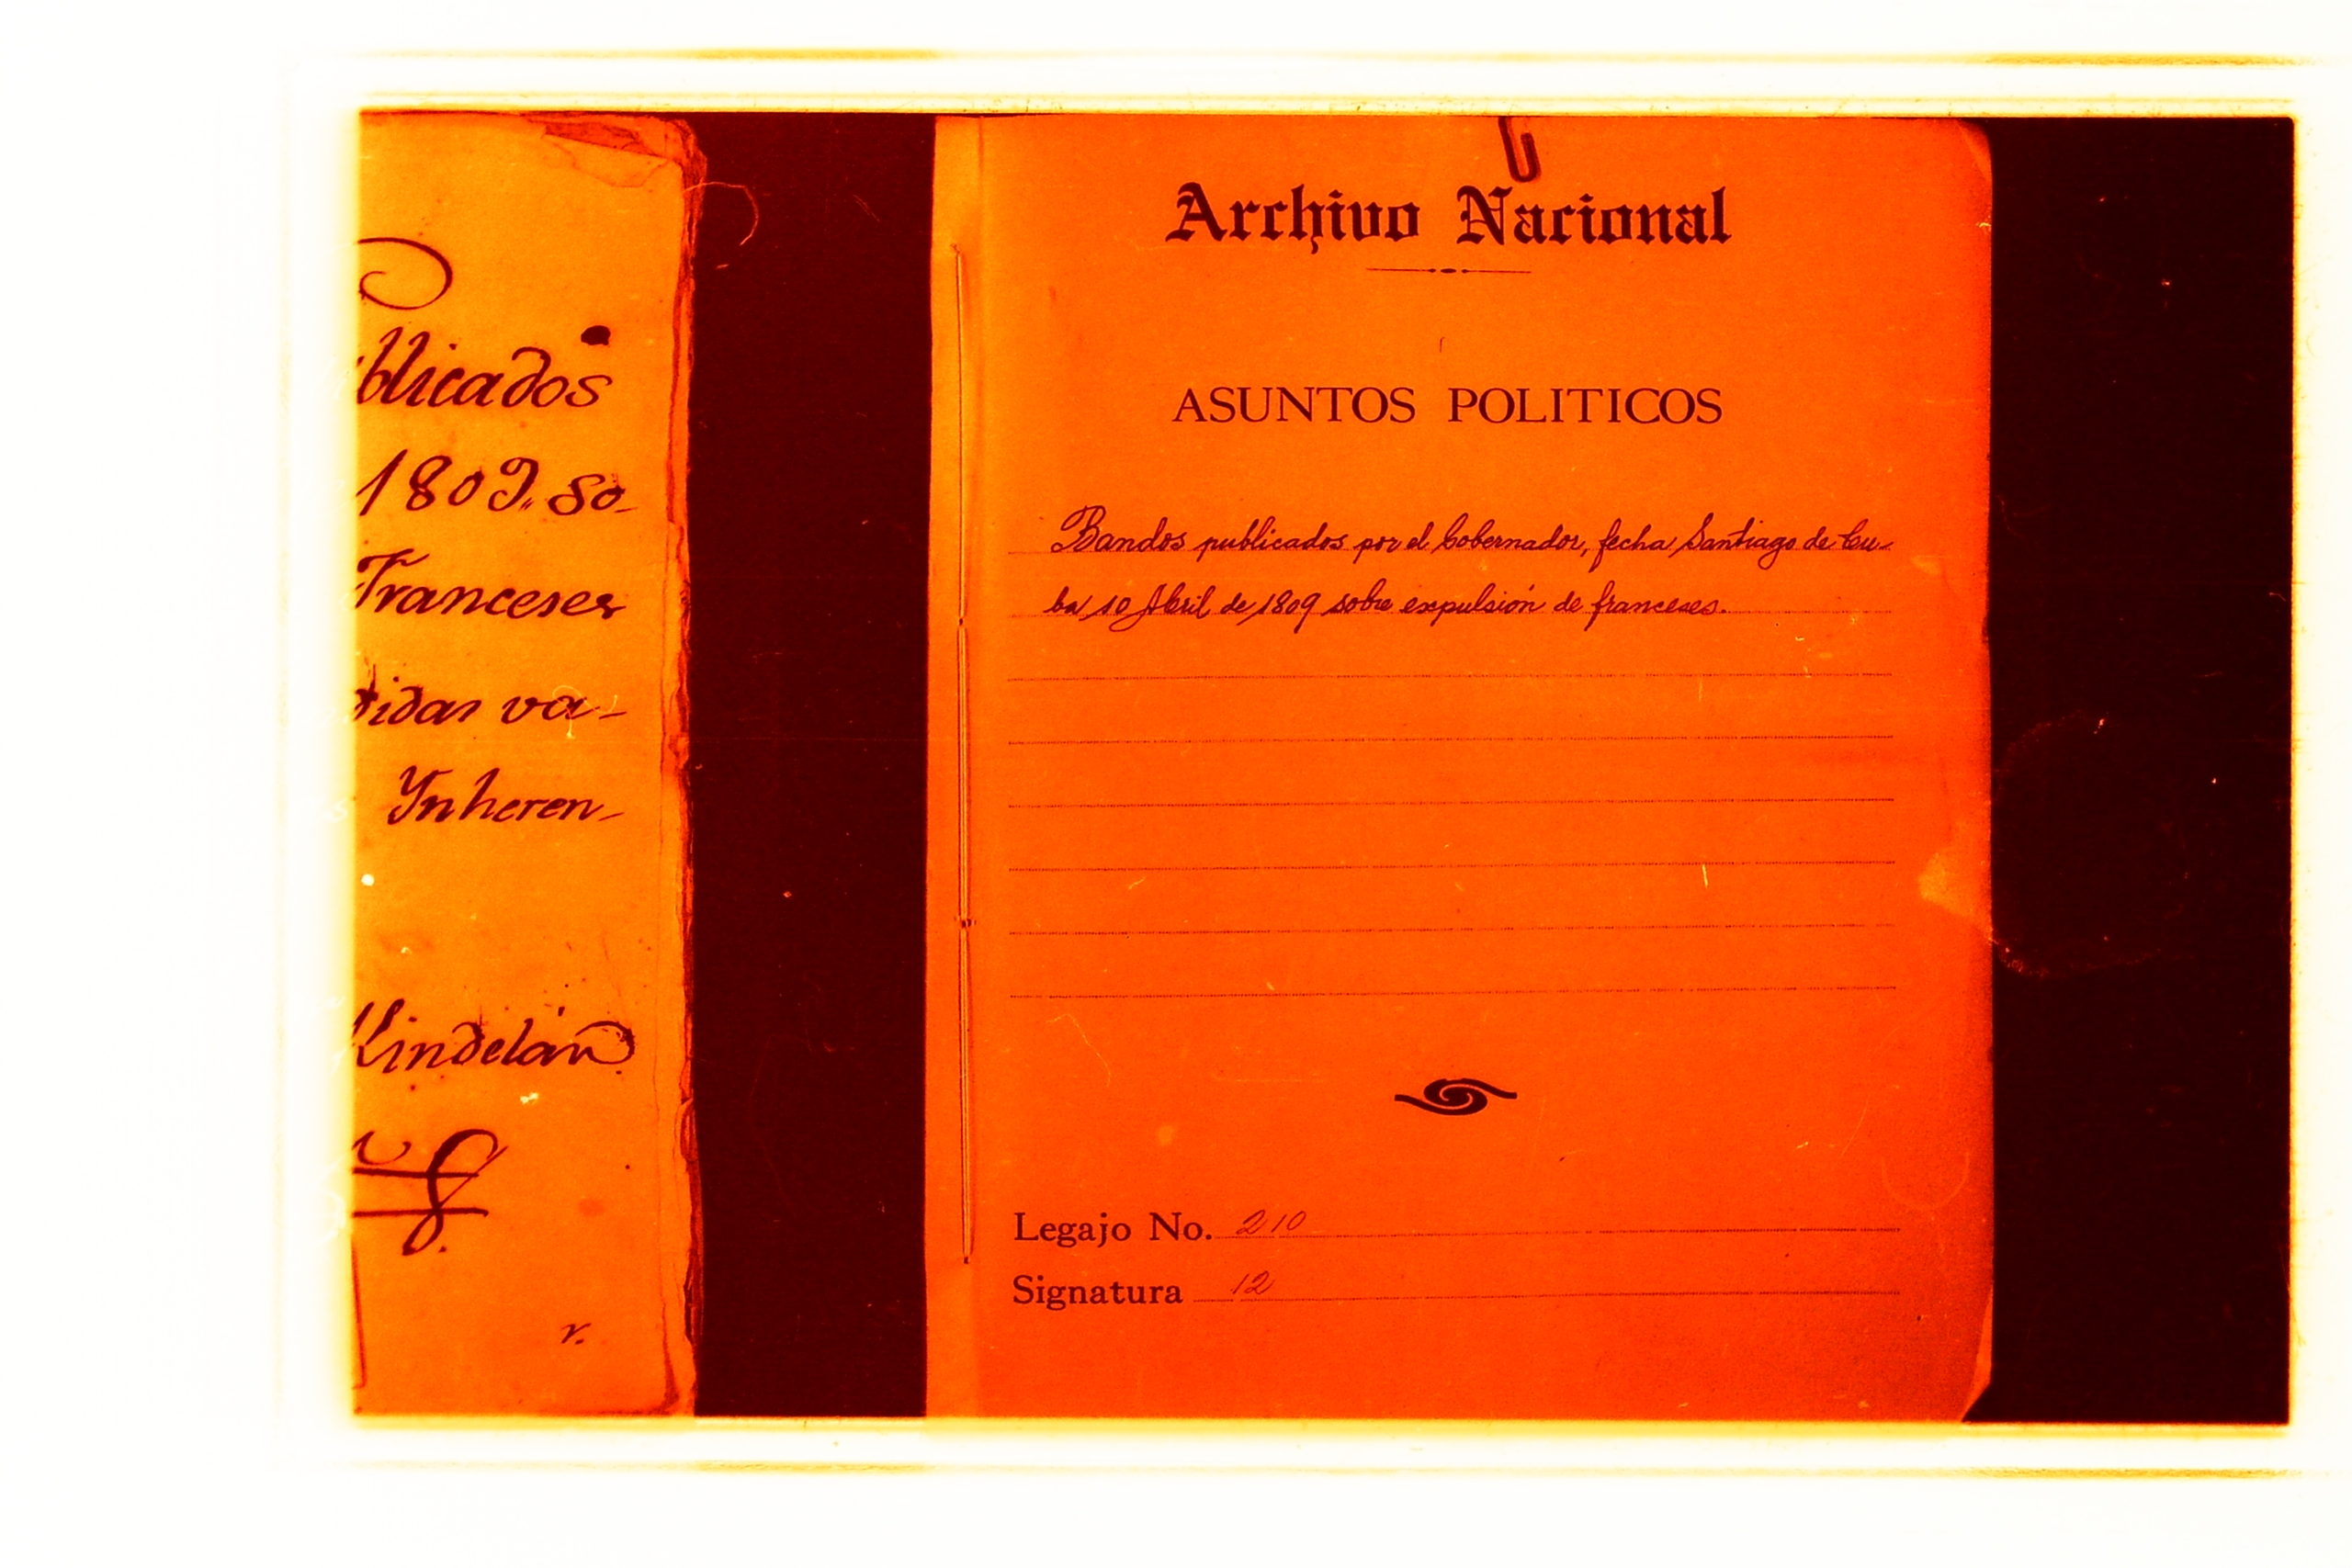 blicados
1809,, so-
Franceses
didas va-
Ynheren-
Kindelán
r.
Archivo Nacional
ASUNTOS POLITICOS
Bandos publicados por el Gobernador, fecha Santiago de Cu-
ba 10 Abril de 1809 sobre expulsión de franceses.
Legajo No. 210
Signatura 12